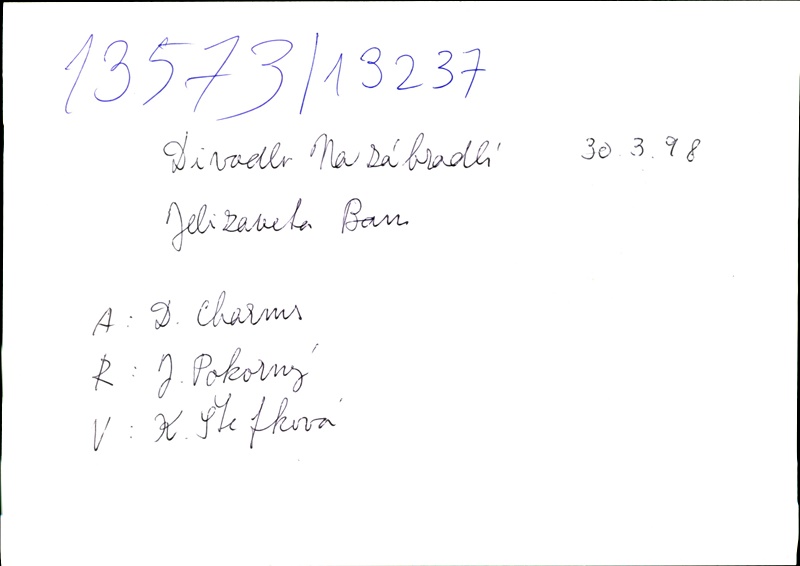 13573/13237
Divadlo Na zábradlí 30.3.98
Jelizaveta Bam
A: D. Charms
R: J. Pokorný
V: K. Štefková